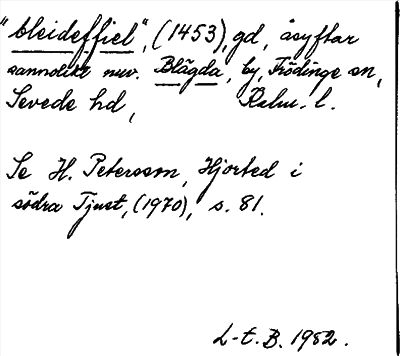 "bleideffiel", (1453), gd, åsyftar
sannolikt nuv. Blägda, by, Frödinge sn,
Sevede hd, Kalm. l.
Se H. Petersson, Hjorted i
södra Tjust, (1970), s. 81.
L-t. B. 1982.